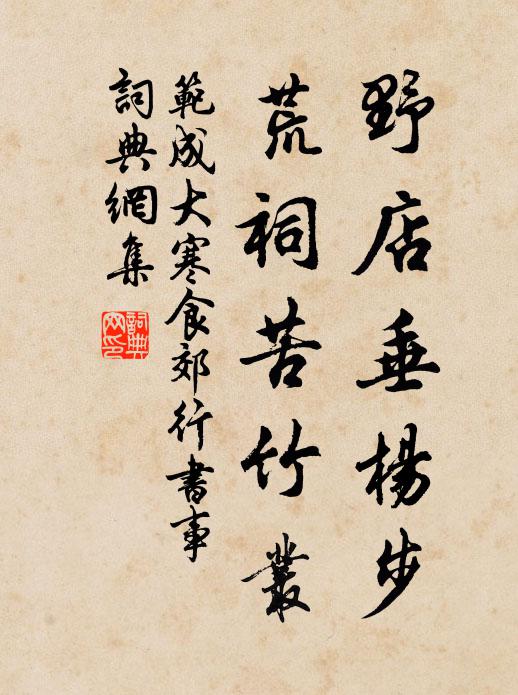 野店垂楊步
荒祠苦竹叢
範成大寒食郊行書事
詞典網集
詞典
网印